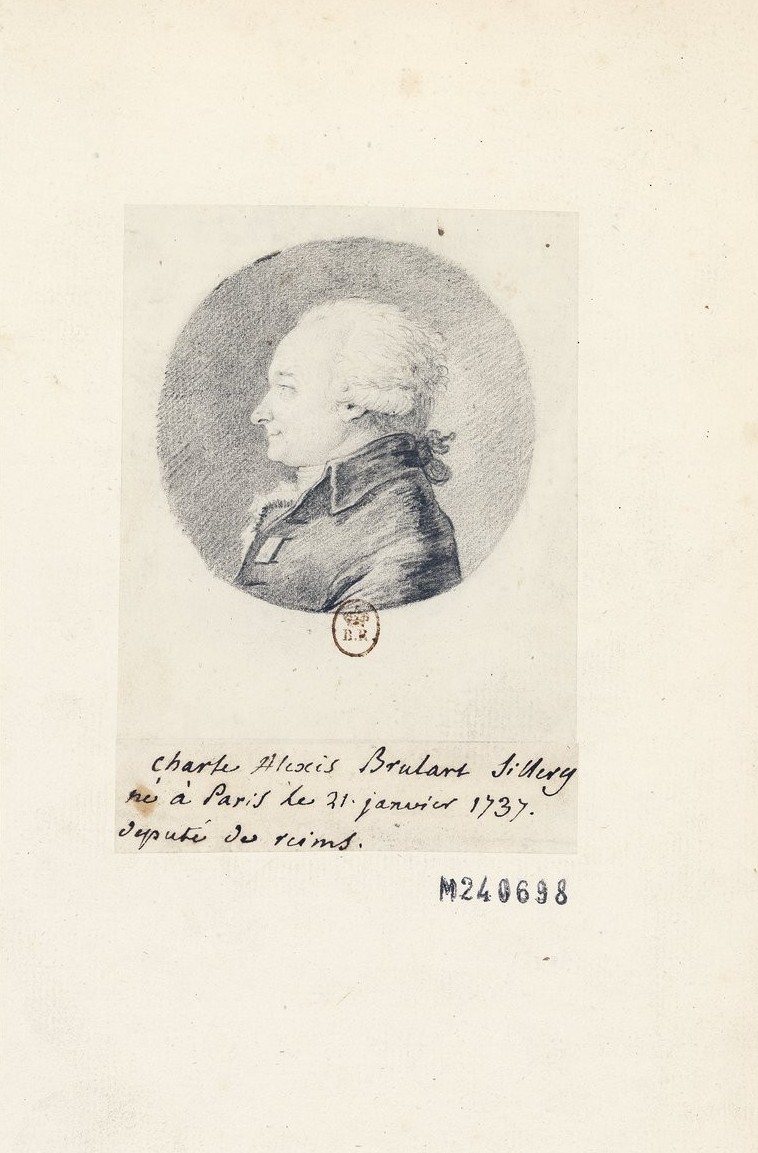 B.R.
charle Alexis Brulart Sillery
né à Paris le 21. janvier 1737.
député de reims.
M240698